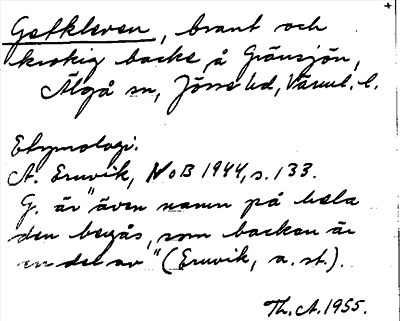 Getkleven, brant och
krokig backe å Gränsjön,
Älgå sn, Jösse hd, Värml. l.
Etymologi.
A. Ernvik, NoB 1944, s. 133.
G. är "även namn på hela
den bergås, som backen är
en del av" (Ernvik, a. st.).
Th. A. 1955.